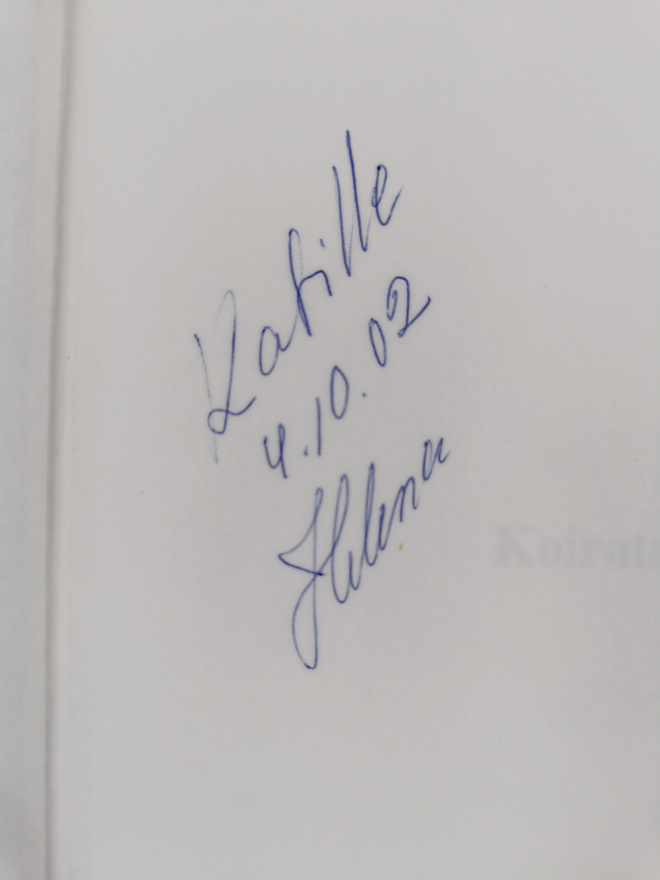 Katille
4.10.02
Helena
Koirat